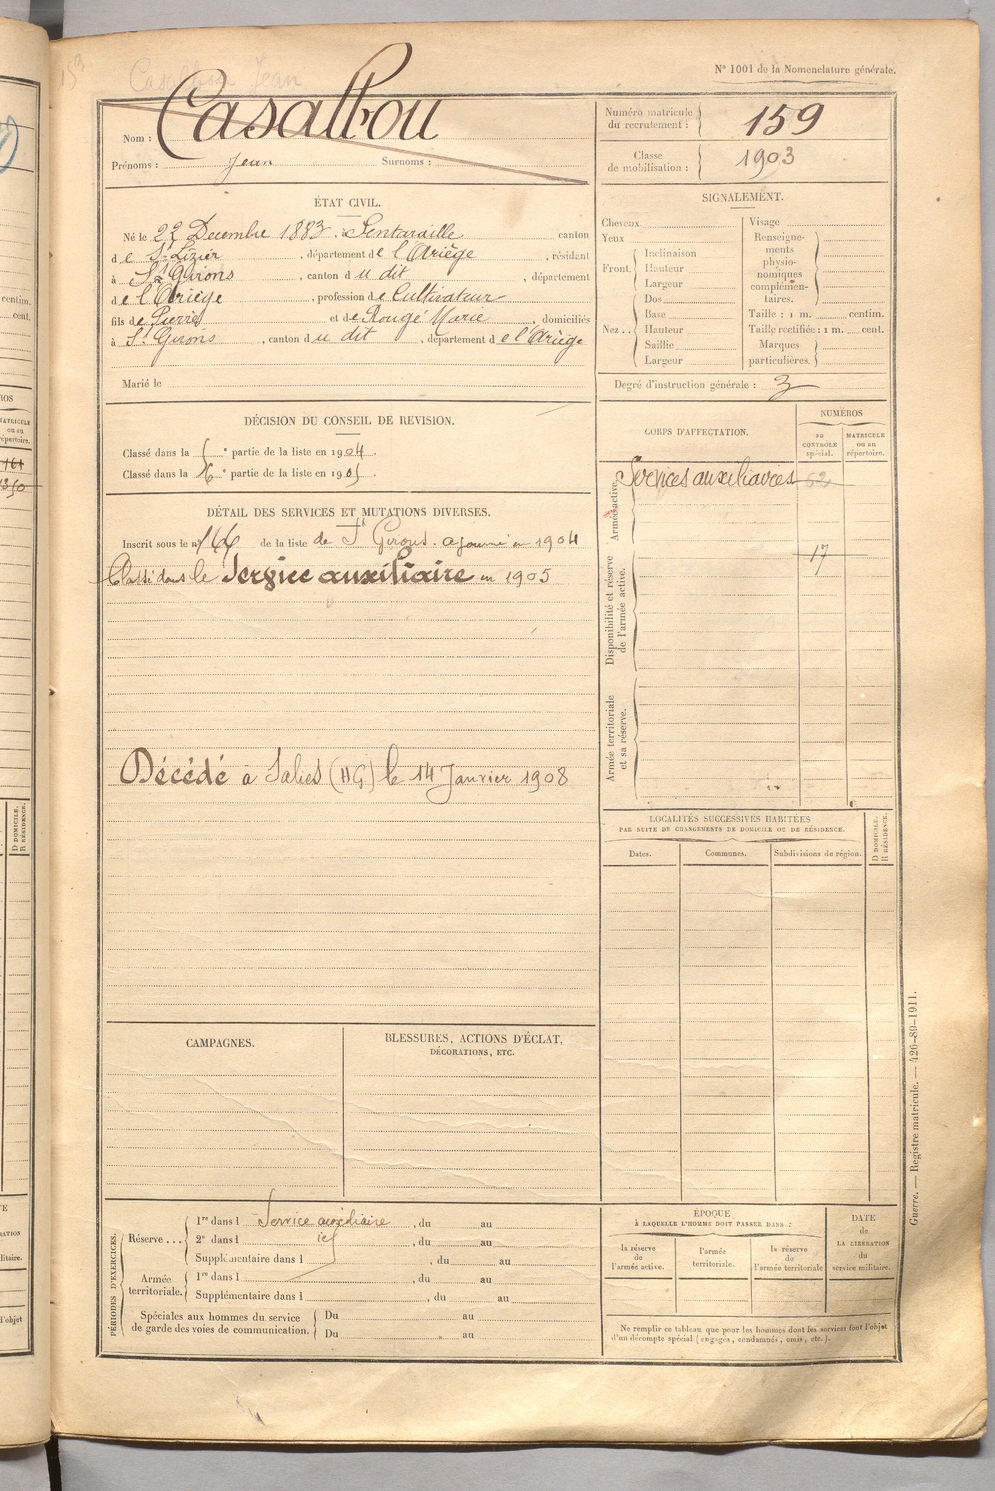 Casalbou Jean
N° 1001 de la Nomenclature générale.
Nom : Casalbou
Prénoms : Jean Surnoms :
Numéro matricule du recrutement : 159
Classe de mobilisation : 1903
ÉTAT CIVIL.
Né le 22 Decembre 1883, à Lentaraille canton
de St Lizier, département de l'Ariège, résidant
à St Girons, canton du dit, département
de l'Ariège, profession de Cultivateur
fils de Pierre et de Rougé Marie, domiciliés
à St Girons, canton du dit, département de l'Ariège
Marié le
SIGNALEMENT.
Cheveux
Yeux
Front.
Inclinaison
Hauteur
Largeur
Nez ..
Dos
Base
Hauteur
Saillie
Largeur
Visage
Renseignements physionomiques complémentaires.
Taille : 1 m. centim.
Taille rectifiée : 1 m. cent.
Marques particulières.
Degré d'instruction générale : 3
DÉCISION DU CONSEIL DE REVISION.
Classé dans la e partie de la liste en 1904.
Classé dans la 6e partie de la liste en 1905.
CORPS D'AFFECTATION.
NUMÉROS
au CONTRÔLE spécial.
MATRICULE ou au répertoire.
Armée active.
Services auxiliaires 62
17
Disponibilité et réserve de l'armée active.
Armée territoriale et sa réserve.
DÉTAIL DES SERVICES ET MUTATIONS DIVERSES.
Inscrit sous le n° de la liste de St Girons. ajourné en 1904
Classé dans le Service auxiliaire en 1905
Décédé à Salies (HG) le 14 Janvier 1908
LOCALITÉS SUCCESSIVES HABITÉES
PAR SUITE DE CHANGEMENTS DE DOMICILE OU DE RÉSIDENCE.
Dates. Communes. Subdivisions de région.
D DOMICILE.
R RÉSIDENCE.
CAMPAGNES.
BLESSURES, ACTIONS D'ÉCLAT,
DÉCORATIONS, ETC.
PÉRIODES D'EXERCICES.
Réserve ...
1re dans l Service auxiliaire, du au
2e dans l id, du au
Supplémentaire dans l, du au
Armée territoriale.
1re dans l, du au
Supplémentaire dans l, du au
Spéciales aux hommes du service de garde des voies de communication.
Du au
Du au
ÉPOQUE
À LAQUELLE L'HOMME DOIT PASSER DANS :
la réserve de l'armée active.
l'armée territoriale.
la réserve de l'armée territoriale
DATE
de
LA LIBÉRATION
du
service militaire.
Ne remplir ce tableau que pour les hommes dont les services font l'objet
d'un décompte spécial (engagés, condamnés, omis, etc.).
Guerre. — Registre matricule. — 426-89-1911.